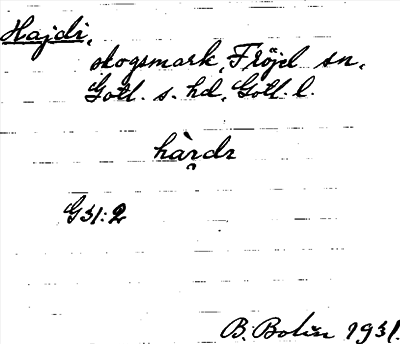 Hajdi,
skogsmark, Fröjel sn,
Gotl. s. hd, Gotl. l.
hàrdr
G31:2
B. Bolin 1931.